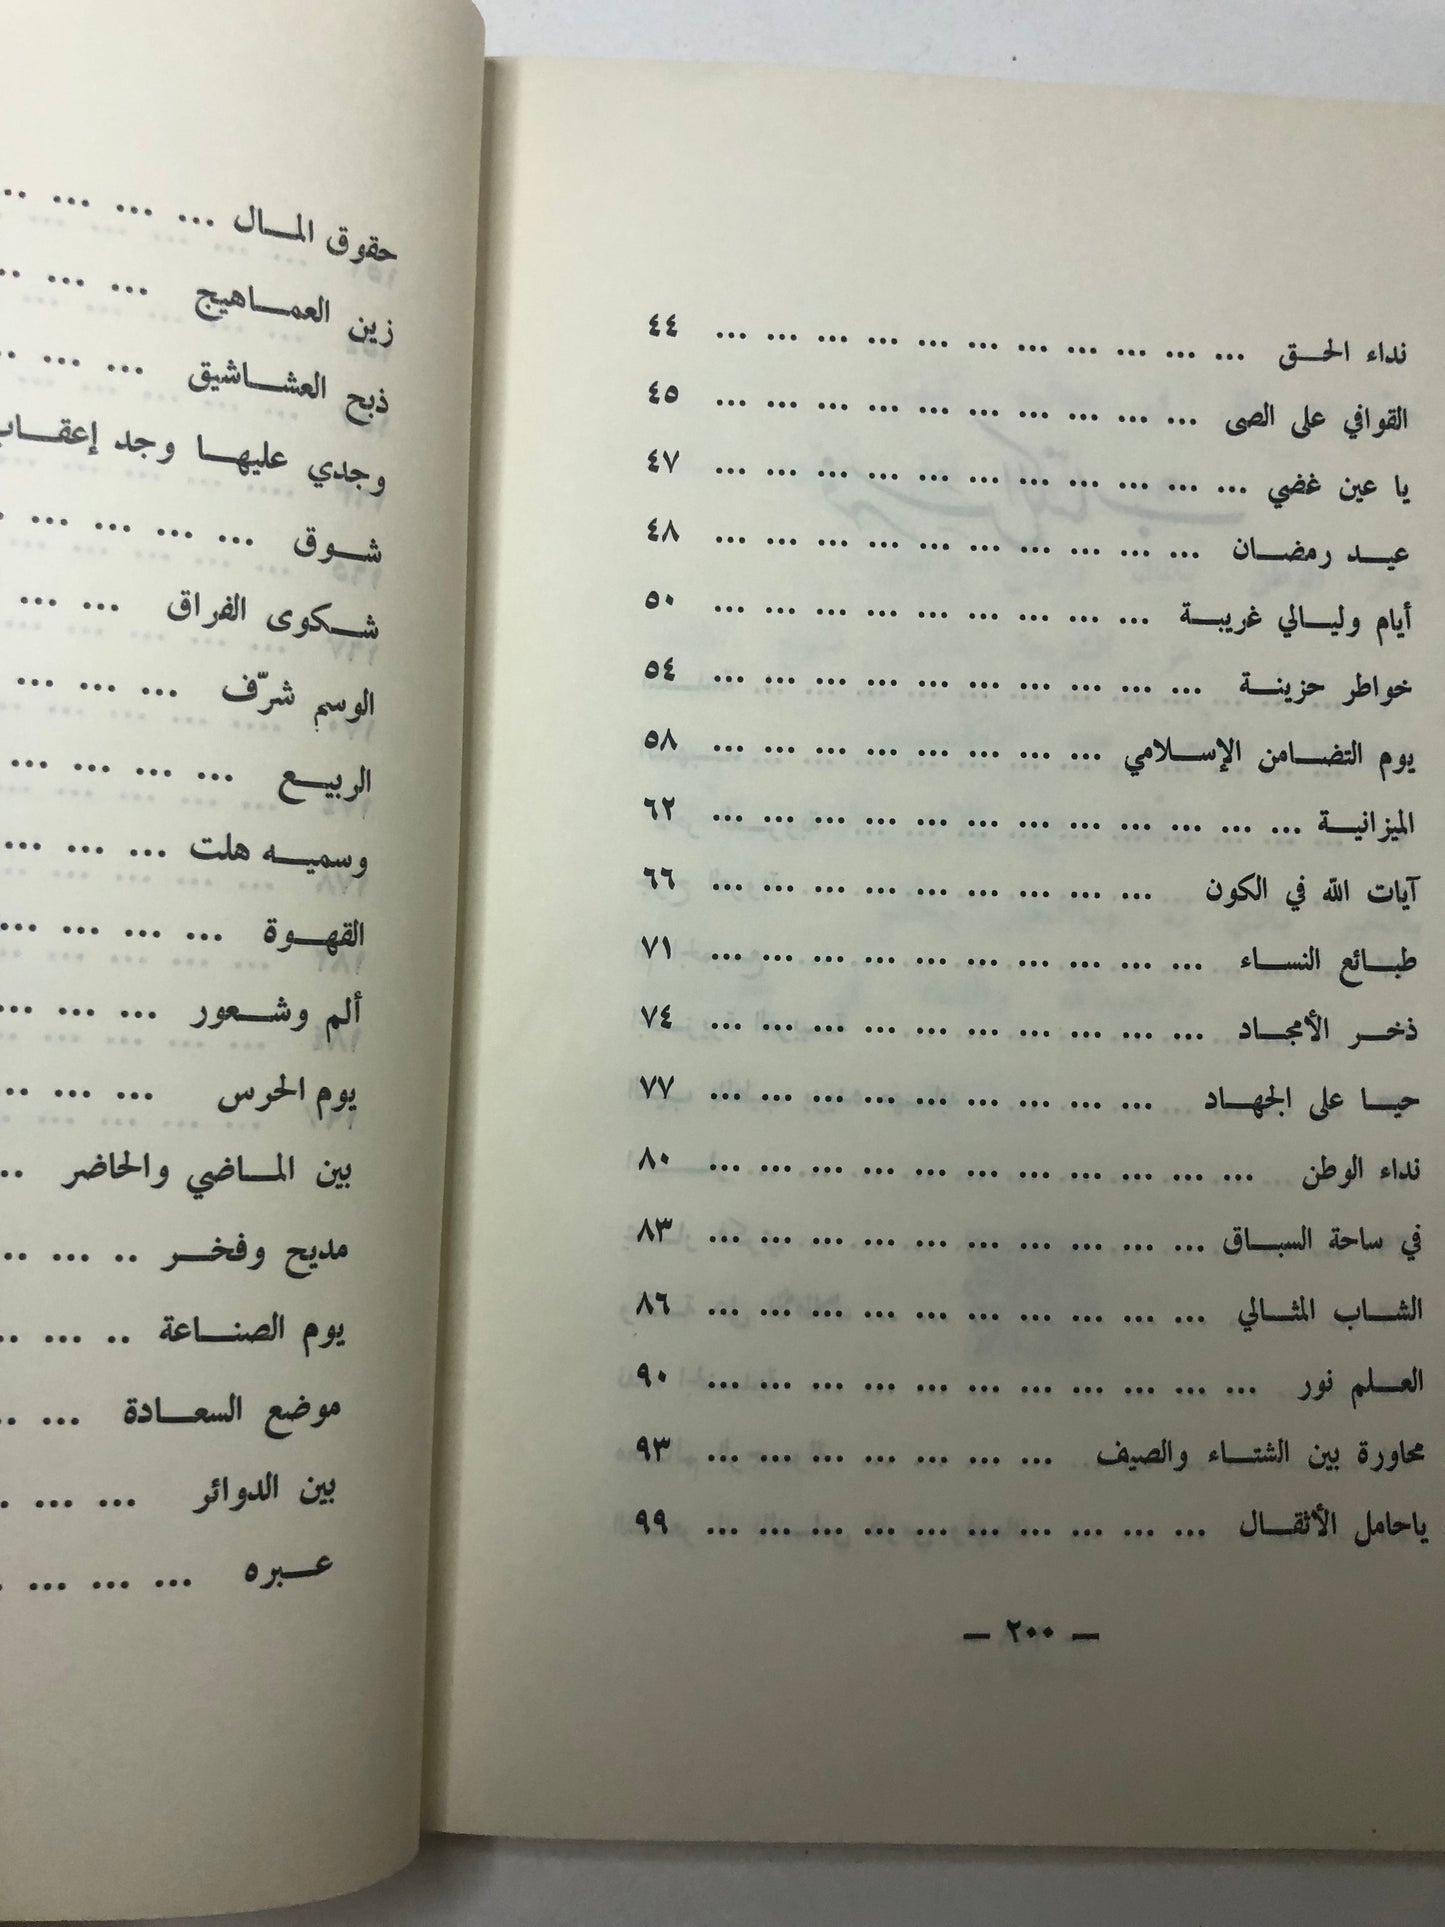 نداء الحق ... ... ... ... ... ... ... ... ... ... ... ٤٤
القوافي على الصى ... ... ... ... ... ... ... ... ... ... ٤٥
يا عين غضي ... ... ... ... ... ... ... ... ... ... ... ٤٧
عيد رمضان ... ... ... ... ... ... ... ... ... ... ٤٨
أيام وليالي غريبة ... ... ... ... ... ... ... ... ... ٥٠
خواطر حزينة ... ... ... ... ... ... ... ... ... ... ٥٤
يوم التضامن الإسلامي ... ... ... ... ... ... ... ... ٥٨
الميزانية ... ... ... ... ... ... ... ... ... ... ... ... ٦٢
آيات الله في الكون ... ... ... ... ... ... ... ... ... ٦٦
طبائع النساء ... ... ... ... ... ... ... ... ... ... ٧١
ذخر الأمجاد ... ... ... ... ... ... ... ... ... ... ٧٤
حيا على الجهاد ... ... ... ... ... ... ... ... ... ٧٧
نداء الوطن ... ... ... ... ... ... ... ... ... ... ... ٨٠
في ساحة السباق ... ... ... ... ... ... ... ... ... ... ٨٣
الشاب المثالي ... ... ... ... ... ... ... ... ... ... ٨٦
العلم نور ... ... ... ... ... ... ... ... ... ... ... ٩٠
محاورة بين الشتاء والصيف ... ... ... ... ... ... ... ٩٣
ياحامل الأثقال ... ... ... ... ... ... ... ... ... ... ٩٩
— ٢٠٠ —
حقوق المال ... ... ... ..
زين العماهيج ... ... ..
ذبح العشاشيق ... ... ..
وجدي عليها وجد
شوق ... ... ... ...
شكوى الفراق ... ...
الوسم شرّف ... ... ...
الربيع ... ... ... ...
وسميه هلت ... ... ...
القهوة ... ... ... ...
ألم وشعور ... ... ...
يوم الحرس ... ... ...
بين الماضي والحاضر ..
مديح وفخر .. ... ...
يوم الصناعة .. ... ...
موضع السعادة ... ... ..
بين الدوائر ... ... ...
عبره ... ... ... ...